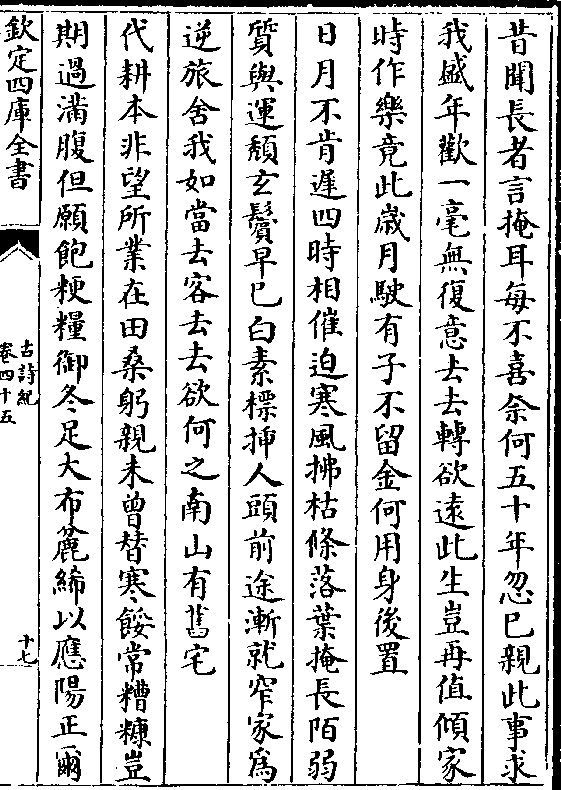 昔聞長者言掩耳每不喜奈何五十年忽已親此事求
我盛年歡一毫無復意去去轉欲遠此生豈再值傾家
時作樂竟此歲月駛有子不留金何用身後置
日月不肯遲四時相催迫寒風拂枯條落葉掩長陌弱
質與運頹玄鬢早已白素標揷人頭前途漸就窄家為
逆旅舍我如當去客去去欲何之南山有舊宅
代耕本非望所業在田桑躬親未曾替寒餒常糟糠豈
期過滿腹但願飽粳糧御冬足大布麄絺以應陽正爾
欽定四庫全書
古詩紀
卷四十五
十七